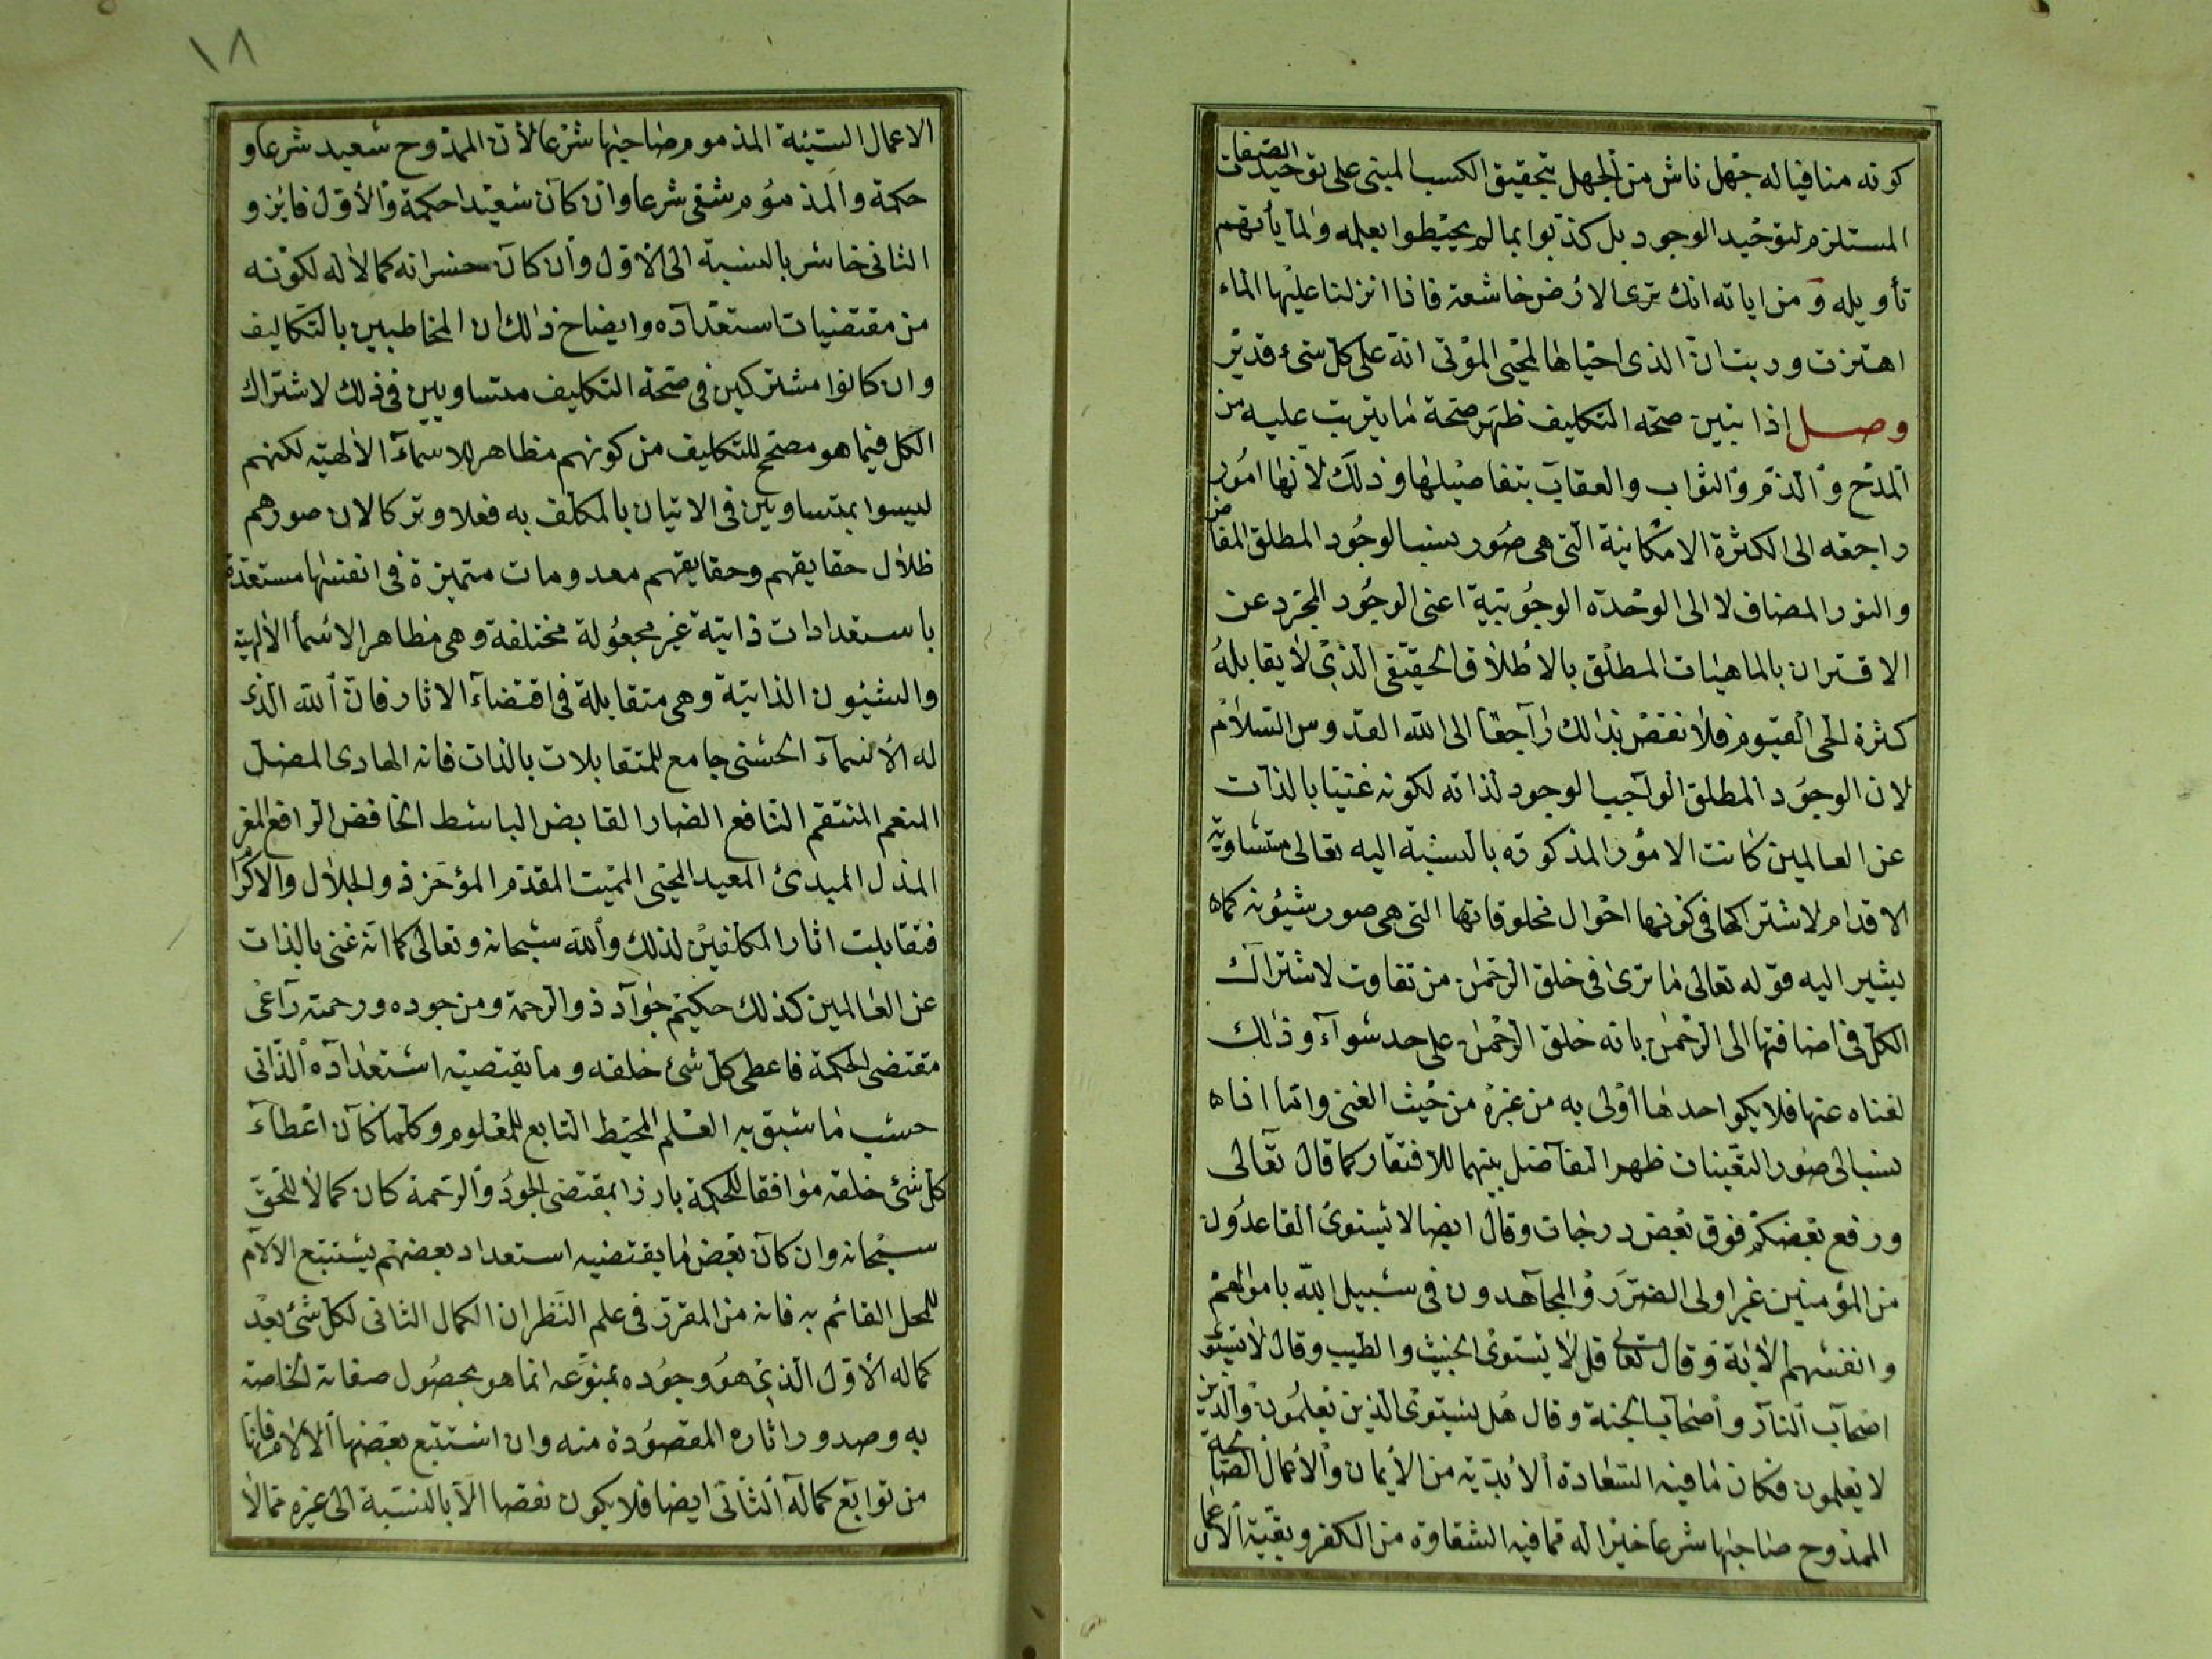 كونه منافيا له جهل ناش من الجهل بتحقيق الكسب المبنى على توحيد الصفات
المستلزم لتوحيد الوجود بل كذبوا بما لم يحيطوا بعلمه ولما يأتهم
تأويله ومن اياته انك ترى الارض خاشعة فاذا انزلنا عليها الماء
اهتزت وربت ان الذى احياها لمحيى الموتى انه على كل شئ قدير
وصل اذا تبين صحة التكليف ظهر صحة ما يترتب عليه من
المدح والذم والثواب والعقاب بتفاصيلها وذلك لانها امور
راجعه الى الكثرة الامكانية التى هى صور نسب الوجود المطلق المفاض
والنور المضاف لا الى الوحدة الوجوبية اعنى الوجود المجرد عن
الاقتران بالماهيات المطلق بالاطلاق الحقيقى الذى لا يقابله
كثرة الحى القيوم فلا نقص بذلك راجعا الى الله القدوس السلام
لان الوجود المطلق الواجب الوجود لذاته لكونه غنيا بالذات
عن العالمين كانت الامور المذكورة بالنسبة اليه تعالى متساوية
الاقدام لاشتراكها فى كونها احوال مخلوقاتها التى هى صور شيؤنه كما
يشير اليه قوله تعالى ما ترى فى خلق الرحمن من تفاوت لاشتراك
الكل فى اضافتها الى الرحمن بانه خلق الرحمن على حد سوآء وذلك
لغناه عنها فلا يكو احدها اولى به من غيره من حيث الغنى واما اذا
نسب الى صور التعينات ظهر التفاضل بينهما للافتقار كما قال تعالى
ورفع بعضكم فوق بعض درجات وقال ايضا لا يستوى القاعدون
من المؤمنين غير اولى الضرر والمجاهدون فى سبيل الله باموالهم
وانفسهم الاية وقال تعالى قل لا يستوى الخبيث والطيب وقال لا يستوى
اصحاب النار واصحاب الجنة وقال هل يستوى الذين يعلمون والذين
لا يعلمون فكان ما فيه السعادة الابدية من الايمان والاعمال الصالحة
الممدوح صاحبها شرعا خيرا له مما فيه الشقاوة من الكفر وبقية الاعمال
١٨
الاعمال السيئة المذموم صاحبها شرعا لأن الممدوح سعيد شرعا و
حكمة والمذموم شقى شرعا وان كان سعيدا حكمة والاول فايز و
الثانى خاسر بالنسبة الى الاول وان كان خسرانه كمالا له لكونه
من مقتضيات استعداده وايضاح ذلك ان المخاطبين بالتكاليف
وان كانوا مشتركين فى صحة التكليف متساويين فى ذلك لاشتراك
الكل فيما هو مصحح للتكليف من كونهم مظاهر للاسماء الالهية لكنهم
ليسوا بمتساويين فى الاتيان بالمكلف به فعلا وتركا لان صورهم
ظلال حقايقهم وحقايقهم معدومات متميزة فى انفسها مستعدة
باستعدادات ذاتية غير مجعولة مختلفة وهى مظاهر الاسمأ الالهية
والشئون الذاتية وهى متقابلة فى اقتضاء الاثار فان الله الذى
له الاسماء الحسنى جامع للمتقابلات بالذات فانه الهادى المضل
المنعم المنتقم النافع الضار القابض الباسط الخافض الرافع المعز
المذل المبدئ المعيد المحيى المميت المقدم المؤخر ذو الجلال والاكرام
فتقابلت اثار المكلفين لذلك والله سبحانه وتعالى كما انه غنى بالذات
عن العالمين كذلك حكيم جواد ذو الرحمة ومن جوده ورحمته راعى
مقتضى الحكمة فاعطى كل شئ خلقه وما يقتضيه استعداده الذاتى
حسب ما سبق به العلم المحيط التابع للمعلوم وكلما كان اعطاء
كل شئ خلقه موافقا للحكمة بارزا بمقتضى الجود والرحمة كان كمالا للحق
سبحانه وان كان بعض ما يقتضيه استعداد بعضهم يستتبع الالام
للمحل القائم به فانه من المقرر فى علم النظر ان الكمال الثانى لكل شئ بعد
كماله الاول الذى هو وجوده بمنوعه انما هو بحصول صفاته الخاصة
به وصدور اثاره المقصودة منه وان استتبع بعضها الالام فانها
من توابع كماله الثانى ايضا فلا يكون نقصا الا بالنسبة الى غيره ممالا